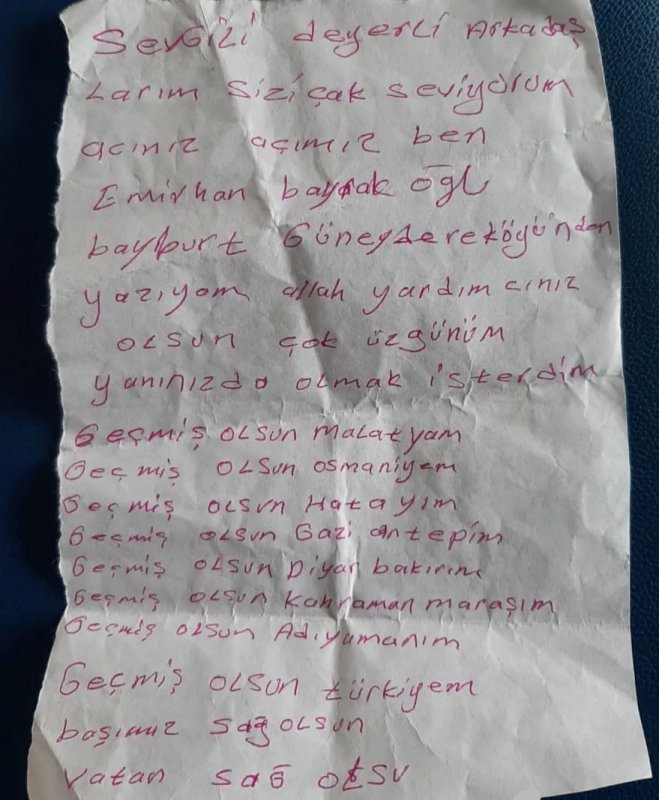 Sevgili deyerli Arkadaş
Larım sizi çak seviyorum
acınız açımız ben
Emirhan bayrak ögl
bayburt Güneydereköyü'nden
yazıyom allah yardım cınız
OLSUN çok üzgünüm
yanınızda olmak isterdim
Geçmiş OLSUN Malatyam
Geçmiş OLSUN osmaniyem
Geçmiş OLSUN Hatayım
Geçmiş OLSUN Gazi antepim
Geçmiş OLSUN Diyar bakırım
Geçmiş OLSUN Kahraman maraşım
Geçmiş OLSUN Adıyamanım
Geçmiş OLSUN türkiyem
başımız sağ OLSUN
Vatan sağ OLSU